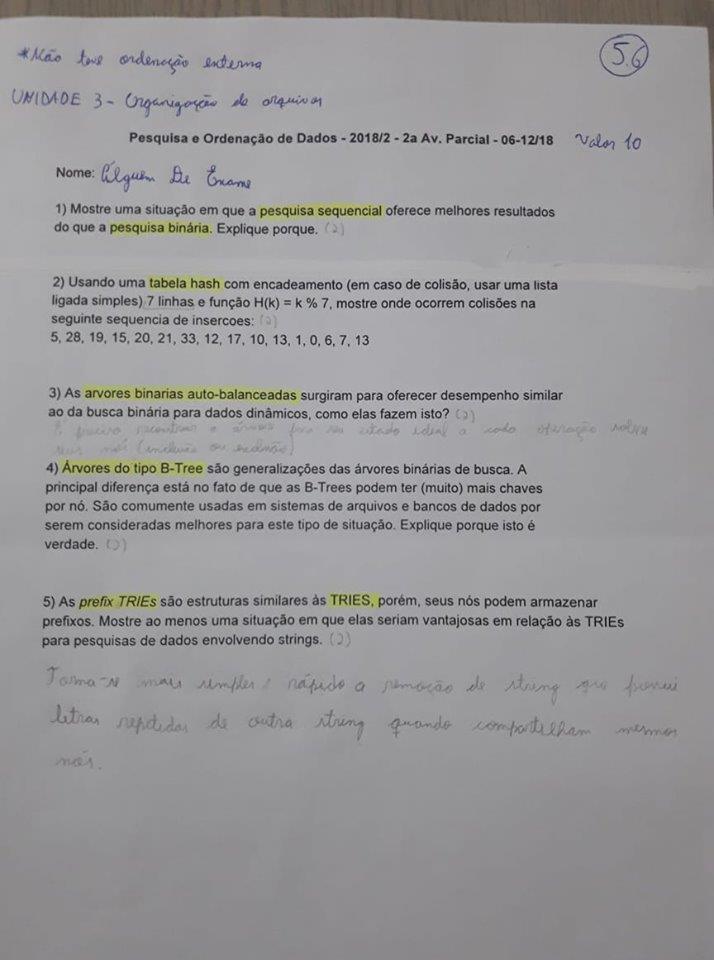 *Não teve ordenação externa
5.6
UNIDADE 3 - Organização de arquivos
Pesquisa e Ordenação de Dados - 2018/2 - 2a Av. Parcial - 06-12/18 Valor 10
Nome: Alguém De Exame
1) Mostre uma situação em que a pesquisa sequencial oferece melhores resultados
do que a pesquisa binária. Explique porque. (2)
2) Usando uma tabela hash com encadeamento (em caso de colisão, usar uma lista
ligada simples) 7 linhas e função H(k) = k % 7, mostre onde ocorrem colisões na
seguinte sequencia de insercoes: (2)
5, 28, 19, 15, 20, 21, 33, 12, 17, 10, 13, 1, 0, 6, 7, 13
3) As arvores binarias auto-balanceadas surgiram para oferecer desempenho similar
ao da busca binária para dados dinâmicos, como elas fazem isto? (2)
É preciso reconstruir a árvore para seu estado ideal a cada operação sobre
seus nós (inclusão ou exclusão)
4) Árvores do tipo B-Tree são generalizações das árvores binárias de busca. A
principal diferença está no fato de que as B-Trees podem ter (muito) mais chaves
por nó. São comumente usadas em sistemas de arquivos e bancos de dados por
serem consideradas melhores para este tipo de situação. Explique porque isto é
verdade. (2)
5) As prefix TRIEs são estruturas similares às TRIES, porém, seus nós podem armazenar
prefixos. Mostre ao menos uma situação em que elas seriam vantajosas em relação às TRIEs
para pesquisas de dados envolvendo strings. (2)
Torna-se mais simples e rápido a remoção de string que possui
letras repetidas de outra string quando compartilham mesmos
nós.